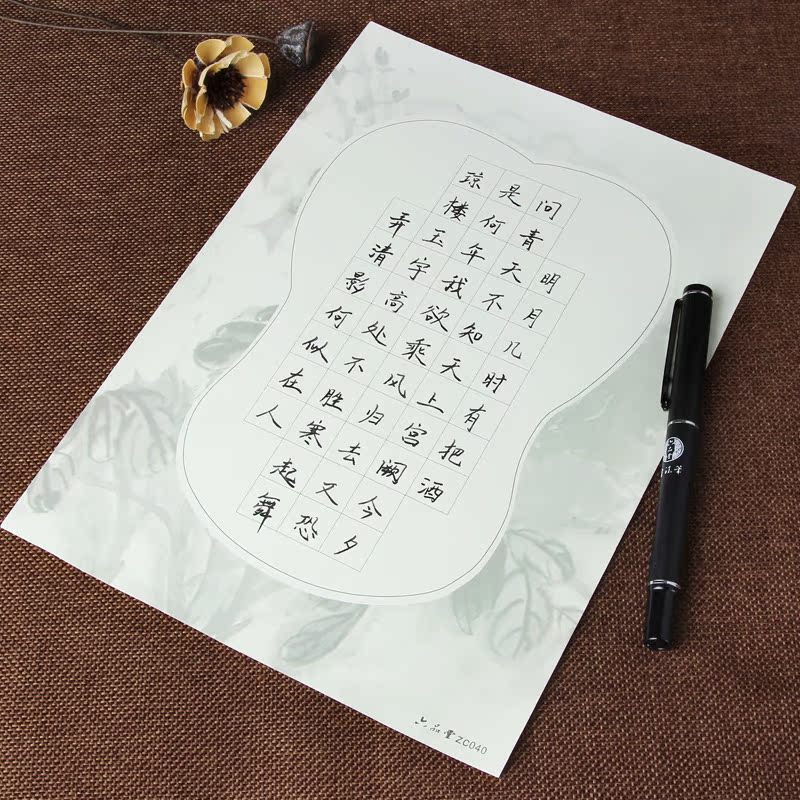 明月几时有把酒
问青天不知天上宫阙今夕
是何年我欲乘风归去又恐
琼楼玉宇高处不胜寒起舞
弄清影何似在人
六品堂 ZC040